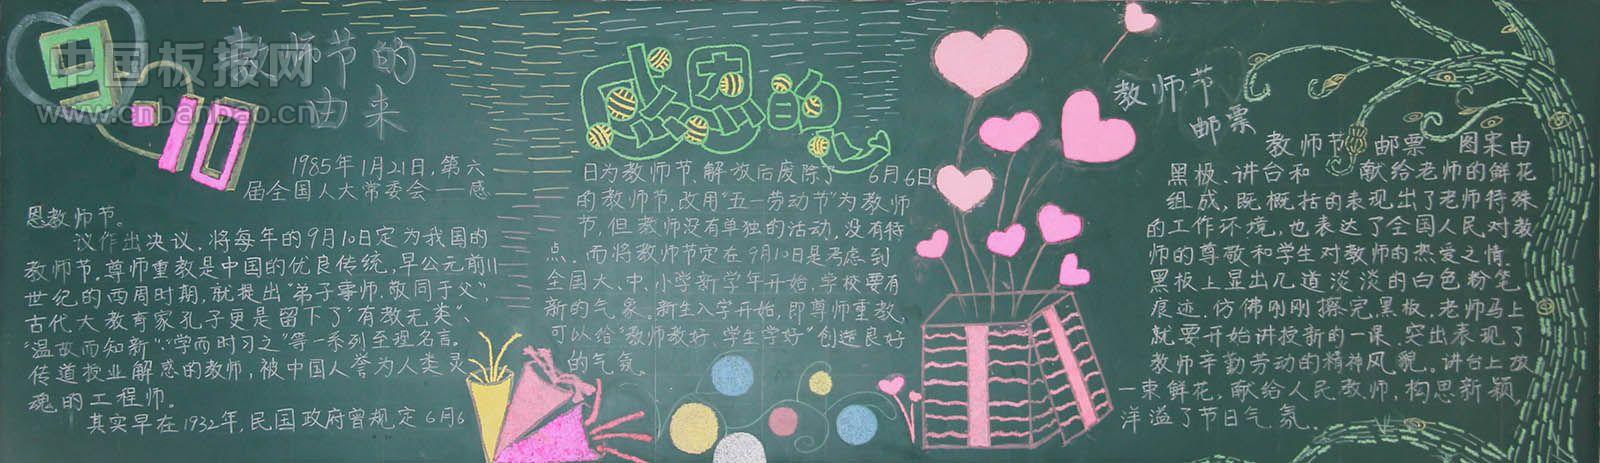 9.10
中国板报网
www.cnbanbao.cn
教师节的
由来
1985年1月21日,第六
届全国人大常委会——感
恩教师节。
议作出决议,将每年的9月10日定为我国的
教师节。尊师重教是中国的优良传统,早公元前11
世纪的西周时期,就提出“弟子事师,敬同于父”,
古代大教育家孔子更是留下了“有教无类”、
“温故而知新”“学而时习之”等一系列至理名言。
传道授业解惑的教师,被中国人誉为人类灵
魂的工程师。
其实早在1932年,民国政府曾规定6月6
日为教师节,解放后废除了6月6日
的教师节,改用“五一劳动节”为教师
节,但教师没有单独的活动,没有特
点.而将教师节定在9月10日是考虑到
全国大、中、小学新学年开始,学校要有
新的气象。新生入学开始,即尊师重教,
可以给“教师教好、学生学好”创造良好
的气氛。
教师节
邮票
教师节 邮票 图案由
黑板、讲台和 献给老师的鲜花
组成,既概括的表现出了老师特殊
的工作环境,也表达了全国人民对教
师的尊敬和学生对教师的热爱之情.
黑板上显出几道淡淡的白色粉笔
痕迹.仿佛刚刚擦完黑板.老师马上
就要开始讲授新的一课.突出表现了
教师辛勤劳动的精神风貌。讲台上放
一束鲜花,献给人民教师,构思新颖,
洋溢了节日气氛.